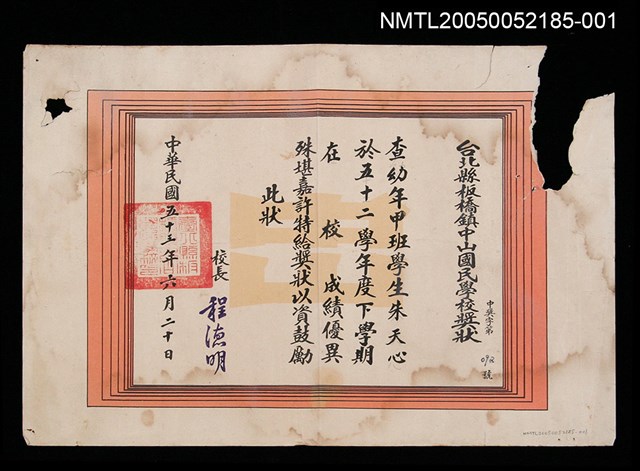 NMTL20050052185-001
台北縣板橋鎮中山國民學校獎狀
中獎字第 092 號
查幼年甲班學生朱天心
於五十二學年度下學期
在校成績優異
殊堪嘉許特給獎狀以資鼓勵
此狀
校長 程德明
中華民國五十三年六月二十日
NMTL20050052185-001